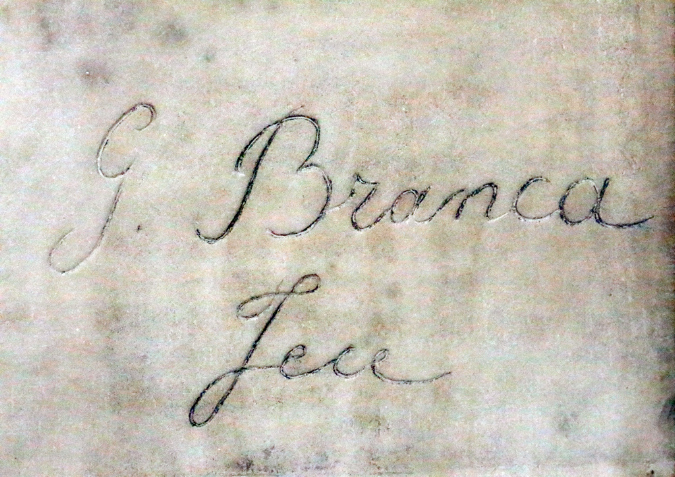 G. Branca
Fece